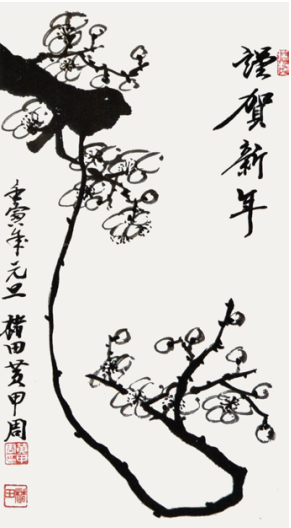 謹賀新年
壬寅年元旦 楮田黃甲周